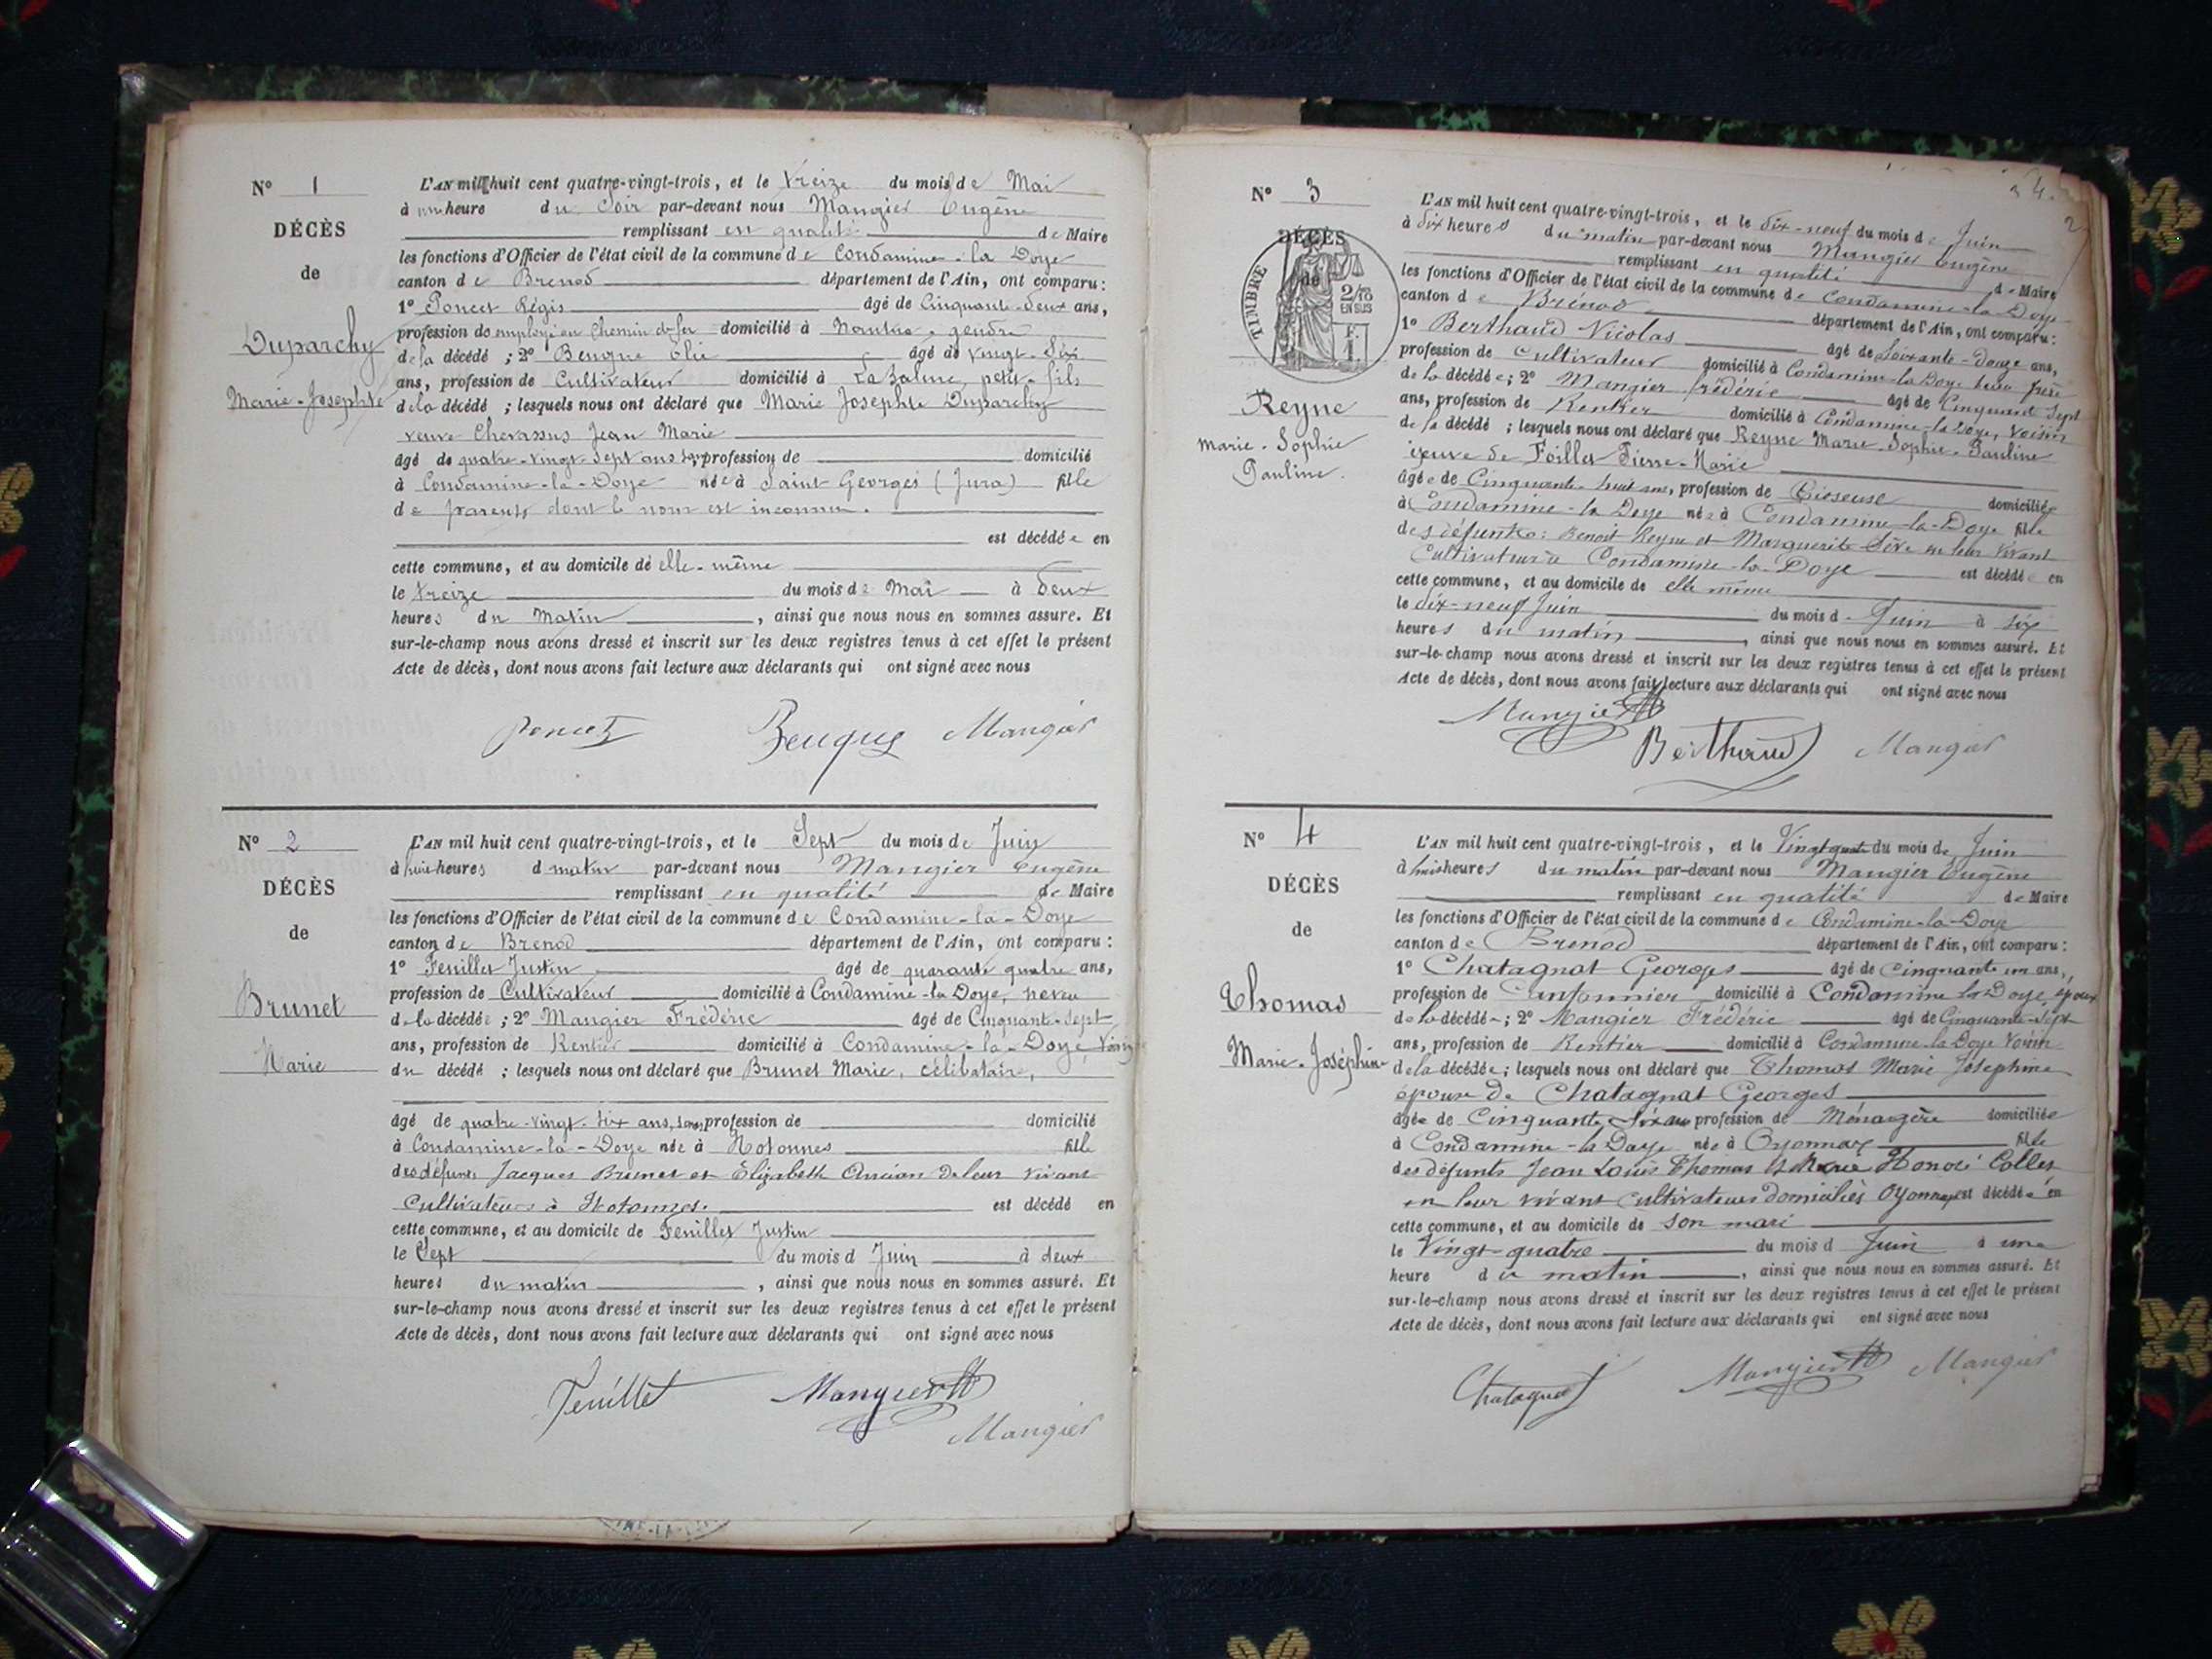 N° 1
DÉCÈS
de
Duparchy
Marie-Josephte
L'AN mil huit cent quatre-vingt-trois, et le treize du mois de Mai
à une heure du Soir par-devant nous Mangier Eugène
remplissant en qualité de Maire
les fonctions d'Officier de l'état civil de la commune de Condamine-la-Doye
canton de Brenod département de l'Ain, ont comparu:
1° Poncet Régis âgé de Cinquante-deux ans,
profession de employé au Chemin de fer domicilié à Nantua, gendre
de la décédé ; 2° Beuque âgé de vingt-six
ans, profession de Cultivateur domicilié à La Balme, petit-fils
de la décédé ; lesquels nous ont déclaré que Marie Josephte Duparchy
veuve Chevassus Jean Marie
âgé de quatre-vingt-sept ans profession de domicilié
à Condamine-la-Doye née à Saint Georges (Jura) fille
de parents dont le nom est inconnu.
est décédée en
cette commune, et au domicile de elle-même
le treize du mois de Mai à deux
heures du Matin , ainsi que nous nous en sommes assure. Et
sur-le-champ nous avons dressé et inscrit sur les deux registres tenus à cet effet le présent
Acte de décès, dont nous avons fait lecture aux déclarants qui ont signé avec nous
Poncet Beuque Mangier
N° 2
DÉCÈS
de
Brunet
Marie
L'AN mil huit cent quatre-vingt-trois, et le Sept du mois de Juin
à huit heures d matin par-devant nous Mangier Eugène
remplissant en qualité de Maire
les fonctions d'Officier de l'état civil de la commune de Condamine-la-Doye
canton de Brenod département de l'Ain, ont comparu:
1° Feuillet Justin âgé de quarante quatre ans,
profession de Cultivateur domicilié à Condamine-la-Doye, neveu
de la décédée ; 2° Mangier Frédéric âgé de Cinquante-sept
ans, profession de Rentier domicilié à Condamine-la-Doye Voisin
du décédé ; lesquels nous ont déclaré que Brunet Marie, célibataire,
âgé de quatre-vingt-six ans, sans profession de domicilié
à Condamine-la-Doye née à Hotonnes fille
des défunts Jacques Brunet et Élizabeth Ancian De leur vivant
Cultivateurs à Hotonnes. est décédé en
cette commune, et au domicile de Feuillet Justin
le Sept du mois d Juin à deux
heures du matin , ainsi que nous nous en sommes assuré. Et
sur-le-champ nous avons dressé et inscrit sur les deux registres tenus à cet effet le présent
Acte de décès, dont nous avons fait lecture aux déclarants qui ont signé avec nous
Feuillet Mangier
Mangier
34.
2
N° 3
DÉCÈS
de
TIMBRE
2/10
EN SUS
F.
1.
Reyne
Marie-Sophie
Pauline.
L'AN mil huit cent quatre-vingt-trois, et le dix-neuf du mois de Juin
à dix heures du matin par-devant nous Mangier Eugène
remplissant en qualité de Maire
les fonctions d'Officier de l'état civil de la commune de Condamine-la-Doye
canton de Brénod département de l'Ain, ont comparu:
1° Berthaud Nicolas âgé de Soixante-douze ans,
profession de Cultivateur domicilié à Condamine-la-Doye beau frère
de la décédée ; 2° Mangier Frédéric âgé de Cinquante Sept
ans, profession de Rentier domicilié à Condamine-la-Doye, Voisin
de la décédé ; lesquels nous ont déclaré que Reyne Marie-Sophie-Pauline
veuve de Foillet Pierre-Marie
âgée de Cinquante-huit ans, profession de domiciliée
à Condamine-la-Doye née à Condamine-la-Doye fille
des défunts: Benoit Reyne et Marguerite Sève en leur vivant
Cultivateurs à Condamine-la-Doye est décédée en
cette commune, et au domicile de elle même
le dix-neuf Juin du mois de Juin à six
heures du matin , ainsi que nous nous en sommes assuré. Et
sur-le-champ nous avons dressé et inscrit sur les deux registres tenus à cet effet le présent
Acte de décès, dont nous avons fait lecture aux déclarants qui ont signé avec nous
Mangier
Berthaud Mangier
N° 4
DÉCÈS
de
Thomas
Marie-Joséphine
L'AN mil huit cent quatre-vingt-trois, et le Vingt quatre du mois de Juin
à huit heures du matin par-devant nous Mangier Eugène
remplissant en qualité de Maire
les fonctions d'Officier de l'état civil de la commune de Condamine-la-Doye
canton de Brenod département de l'Ain, ont comparu:
1° Chatagnat Georges âgé de cinquante un ans,
profession de Cantonnier domicilié à Condamine la Doye, époux
de la décédée ; 2° Mangier Frédéric âgé de Cinquante-sept
ans, profession de Rentier domicilié à Condamine-la-Doye Voisin
de la décédée ; lesquels nous ont déclaré que Thomas Marie Joséphine
épouse de Chatagnat Georges
âgée de Cinquante six ans profession de Ménagère domiciliée
à Condamine-la-Doye née à Oyonnax fille
des défunts Jean Louis Thomas et Marie Honoré Collet
en leur vivant Cultivateurs domiciliés Oyonnax est décédée en
cette commune, et au domicile de son mari
le Vingt-quatre du mois d Juin à une
heure du matin , ainsi que nous nous en sommes assuré. Et
sur-le-champ nous avons dressé et inscrit sur les deux registres tenus à cet effet le présent
Acte de décès, dont nous avons fait lecture aux déclarants qui ont signé avec nous
Chatagnat Mangier Mangier